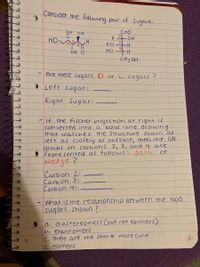 Consider the following pair of Sugars.
OH OH
HO
H
OH O
CHO
H OH
HO H
HO H
CH2OH
- Are these sugars D or L sugars?
Left sugar:
Right sugar:
- If the Fischer projection at right is
converted into a bond-line drawing
that matches the structure shown at
left as closely as possible, then the OH
groups on carbons 2, 3, and 4 are
represented as follows: dash or
wedge?
Carbon 2:
Carbon 3:
Carbon 4:
- What is the relationship between the two
sugars shown?
a. diastereomers (but not epimers)
b. enantiomers
c. they are the same molecule
d. epimers